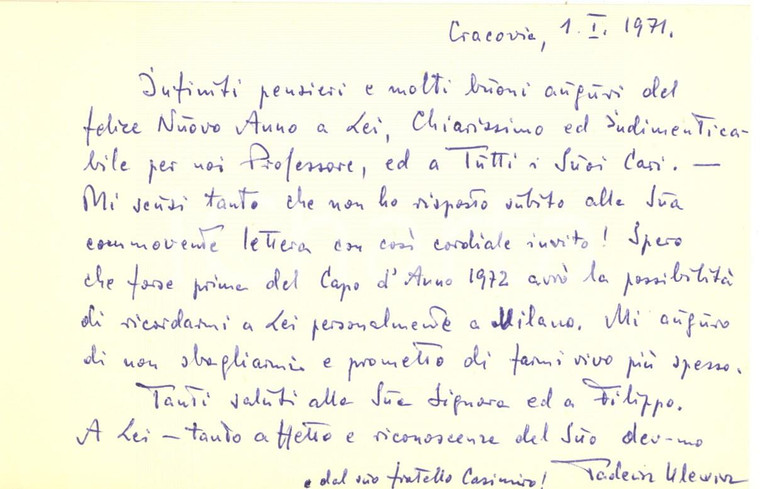 Cracovia, 1. I. 1971.
Infiniti pensieri e molti buoni auguri del
felice Nuovo Anno a Lei, Chiarissimo ed indimentica-
bile per noi Professore, ed a Tutti i Suoi Cari. —
Mi scusi tanto che non ho risposto subito alla Sua
commovente lettera con così cordiale invito! Spero
che forse prima del Capo d'Anno 1972 avrò la possibilità
di ricordarmi a Lei personalmente a Milano. Mi auguro
di non sbagliarmi e prometto di farmi vivo più spesso.
Tanti saluti alla Sua Signora ed a Filippo.
A Lei — tanto affetto e riconoscenza del Suo dev-mo
e dal suo fratello Casimiro! Tadeusz Ulewicz